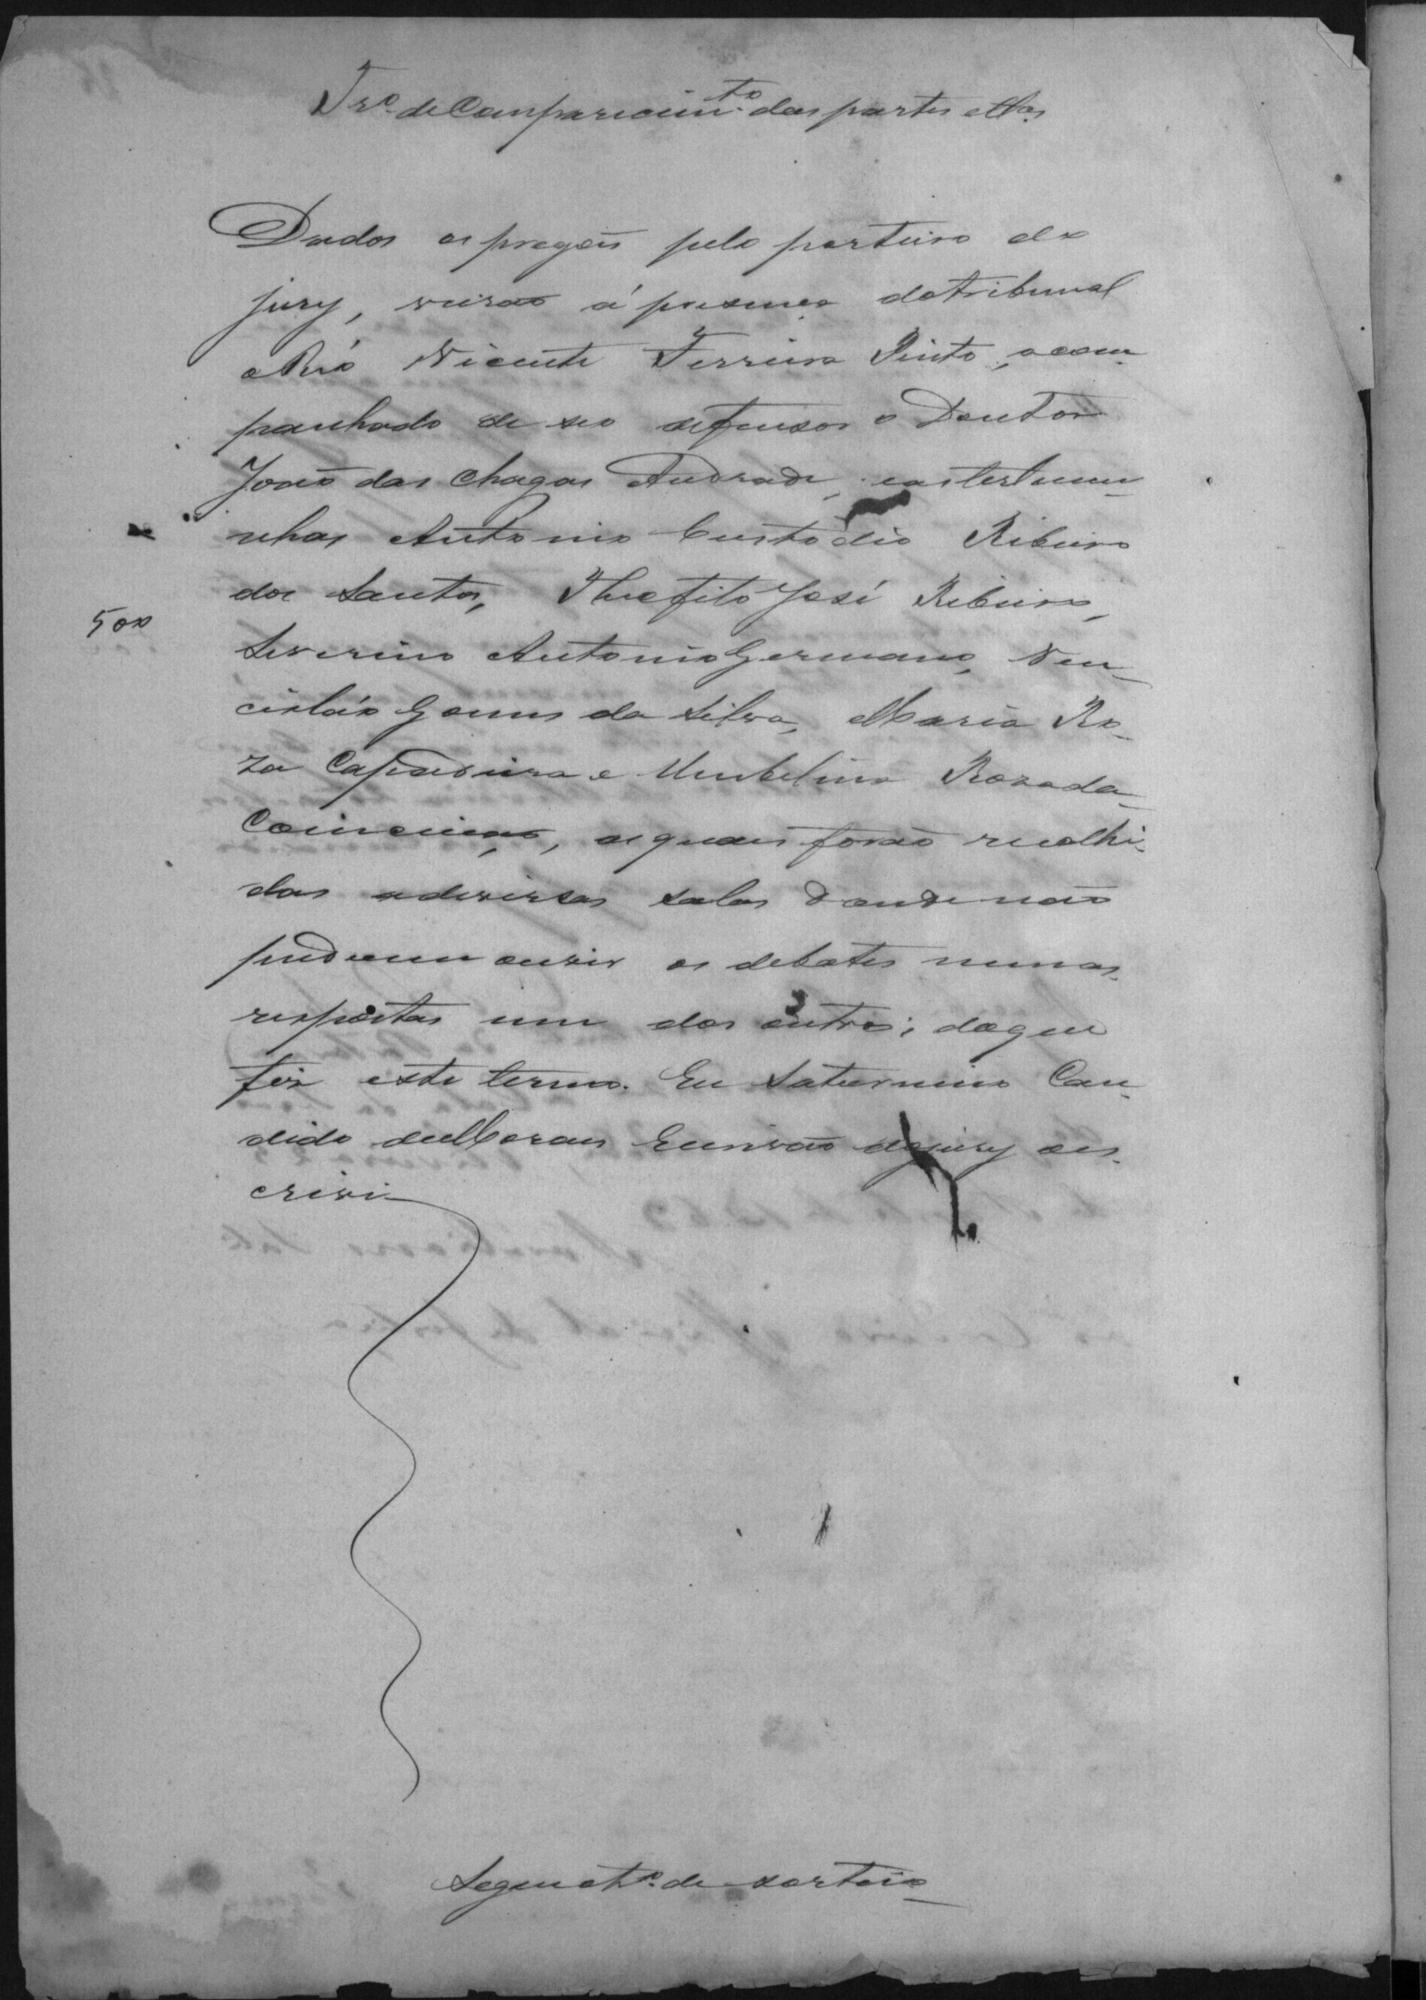 Tr.º de Comparecim.to das partes e tt.as
Dados os pregões pelo porteiro do
jury, veirão á presença do tribunal
o Réo Vicente Ferreira Pinto, acom-
panhado de seo defensor o Doutor
João das Chagas Andrade, e as testemu-
nhas Antonio Custodio Ribeiro
dos Santos, Theofilo José Ribeiro,
500
Severino Antonio Germano, Ven-
cisláo Gomes da Silva, Maria Ro-
za Capadeira e Umbelina Roza da
Conceição, as quaes forão recolhi-
das a diversas salas d'onde não
pudecem ouvir os debates nem as
respostas umas das outras; do que
fiz este termo. Eu Saturnino Can-
dido de Moraes Escrivão do jury o es-
crivi
Segue o tr.º de sorteio